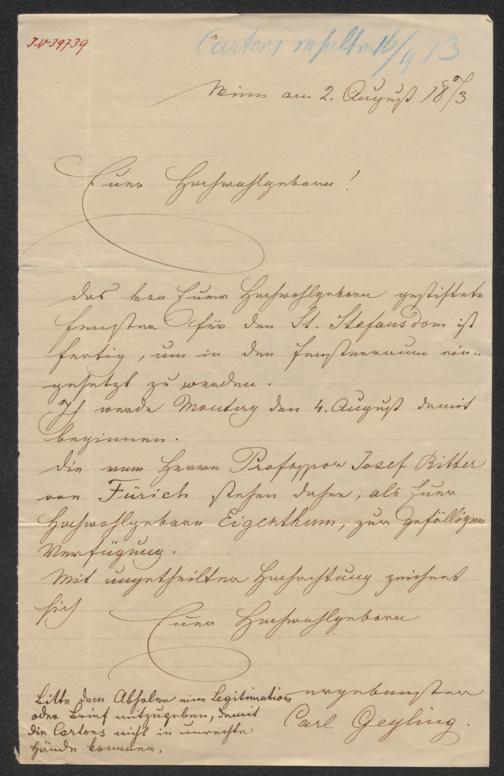 I.N 39739
Cartons erhalten 16/9 73
Wien am 2. August 1873
Euer Hochwohlgeboren!
Das von Euer Hochwohlgeboren gestiftete
Fenster für den St. Stefansdom ist
fertig, um in den Fensterraum ein-
gesetzt zu werden.
Ich werde Montag den 4. August damit
beginnen.
Die vom Herrn Professor Josef Ritter
von Fürich stehen daher, als Euer
Hochwohlgeboren Eigenthum, zur gefälligen
Verfügung.
Mit ungetheilter Hochachtung zeichnet
sich
Euer Hochwohlgeboren
ergebenster
Carl Geyling.
Bitte dem Abholer eine Legitimation
oder Brief mitzugeben, damit
die Cartons nicht in unrechte
Hände kommen.